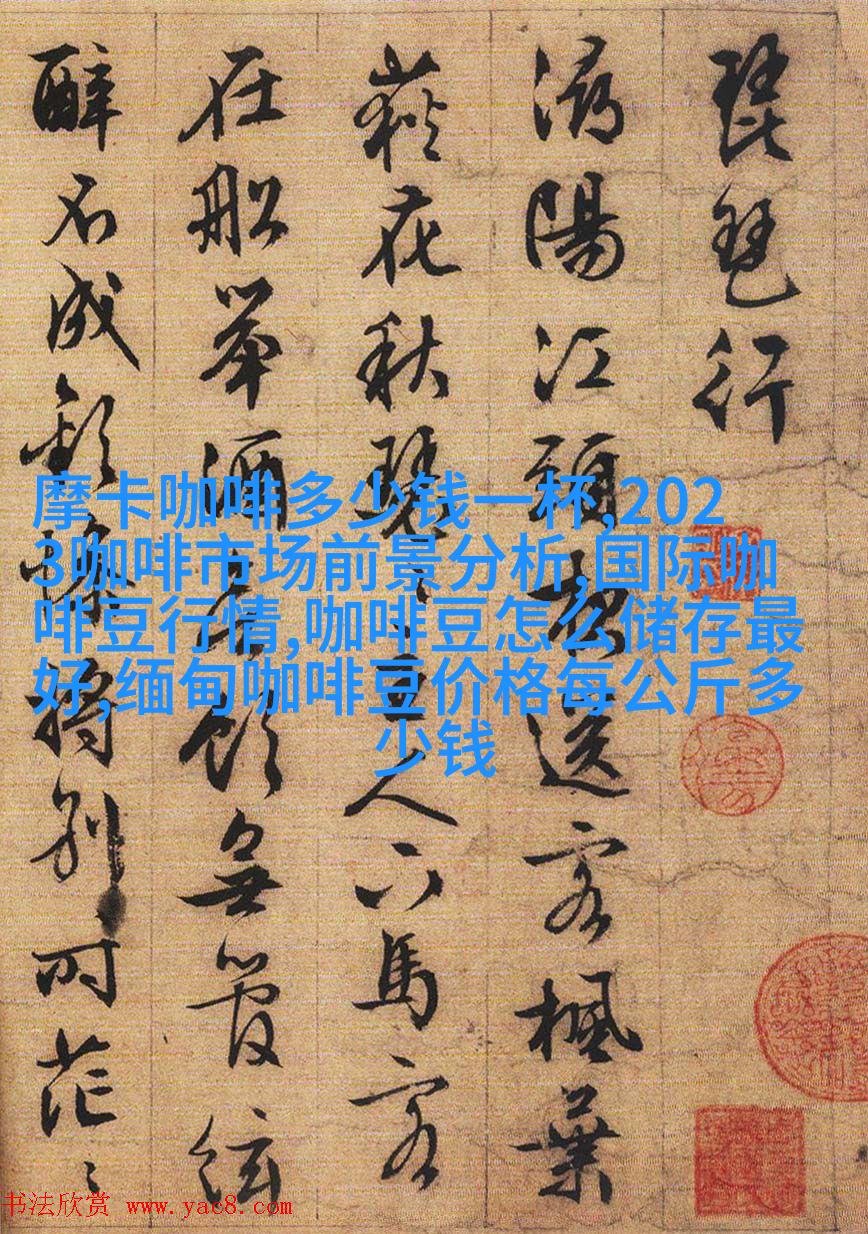 琵琶行
潯陽江頭夜送客楓葉
荻花秋瑟〻主人下馬客
在船舉酒欲飲無管絃
醉不成歡慘將別〻時茫〻
摩卡咖啡多少钱一杯,202
3咖啡市场前景分析,国际咖
啡豆行情,咖啡豆怎么储存最
好,缅甸咖啡豆价格每公斤多
少钱
书法欣赏 www.yac8.com